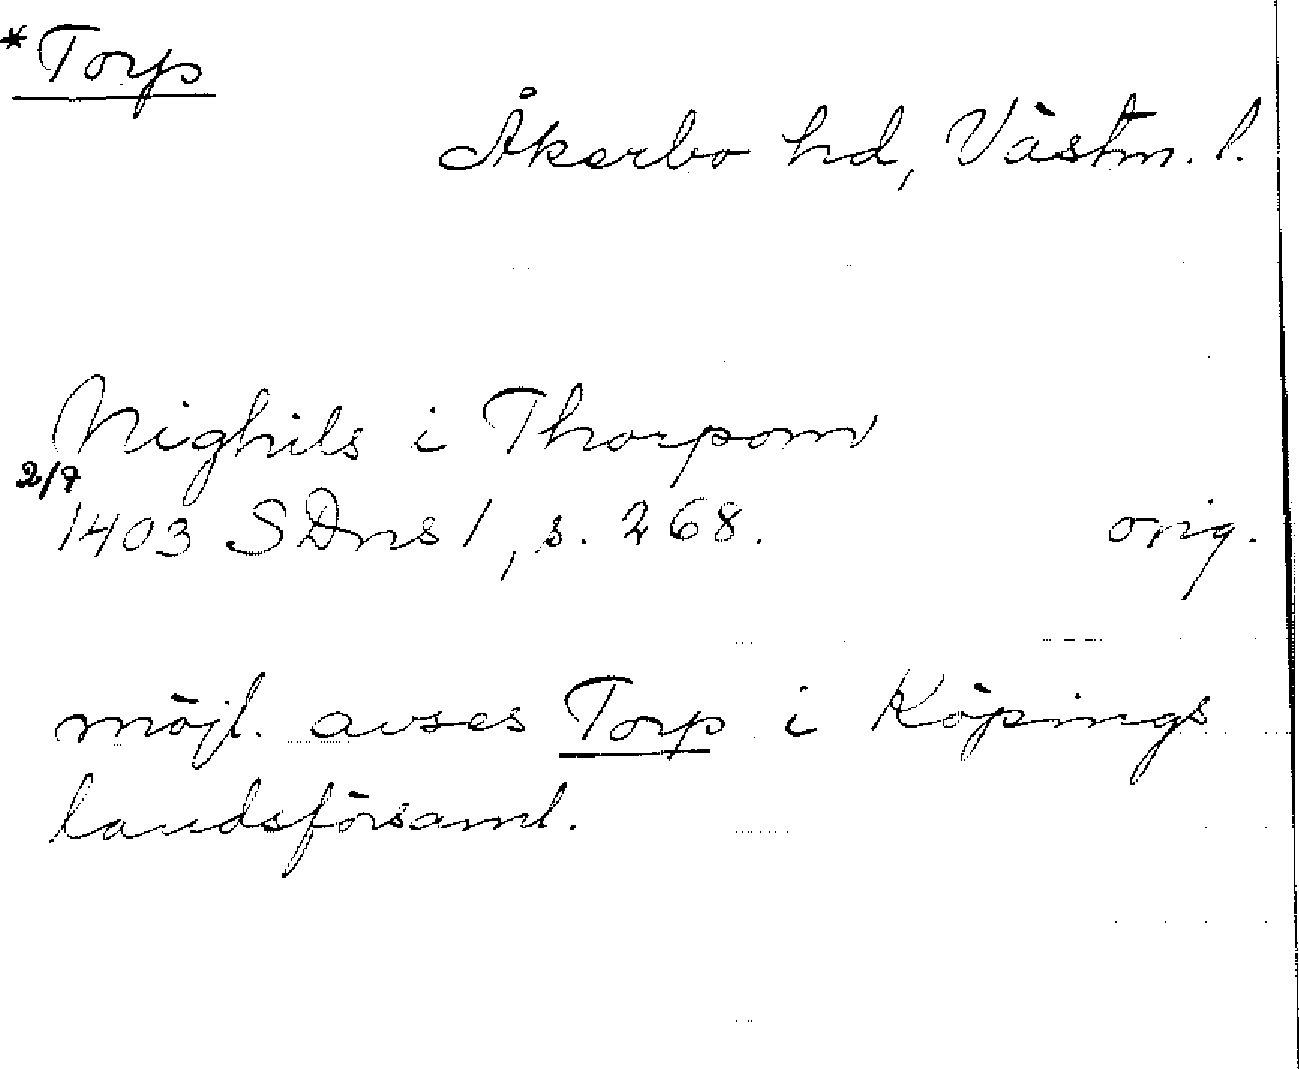 *Torp
Åkerbo hd, Västm. l.
Nighils i Thorpom
2/7
1403 SDns 1, s. 268. orig.
möjl. avses Torp i Köpings
landsförsaml.